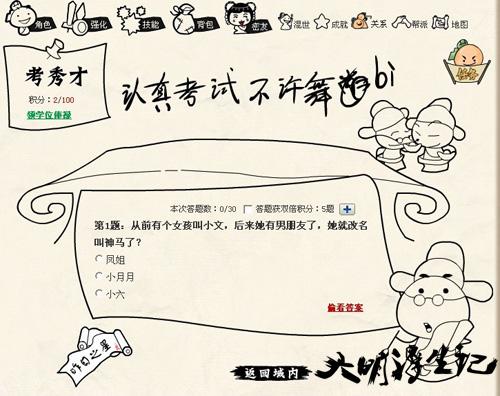 角色 强化 技能 背包 密友 混世 成就 关系 帮派 地图
考秀才
积分：2/100
领学位俸禄
认真考试 不许舞弊bi
任务
本次答题数：0/30 答题获双倍积分：5题
第1题：从前有个女孩叫小文，后来她有男朋友了，她就改名
叫神马了？
凤姐
小月月
小六
偷看答案
昨日之星
返回城内
大明浮生记